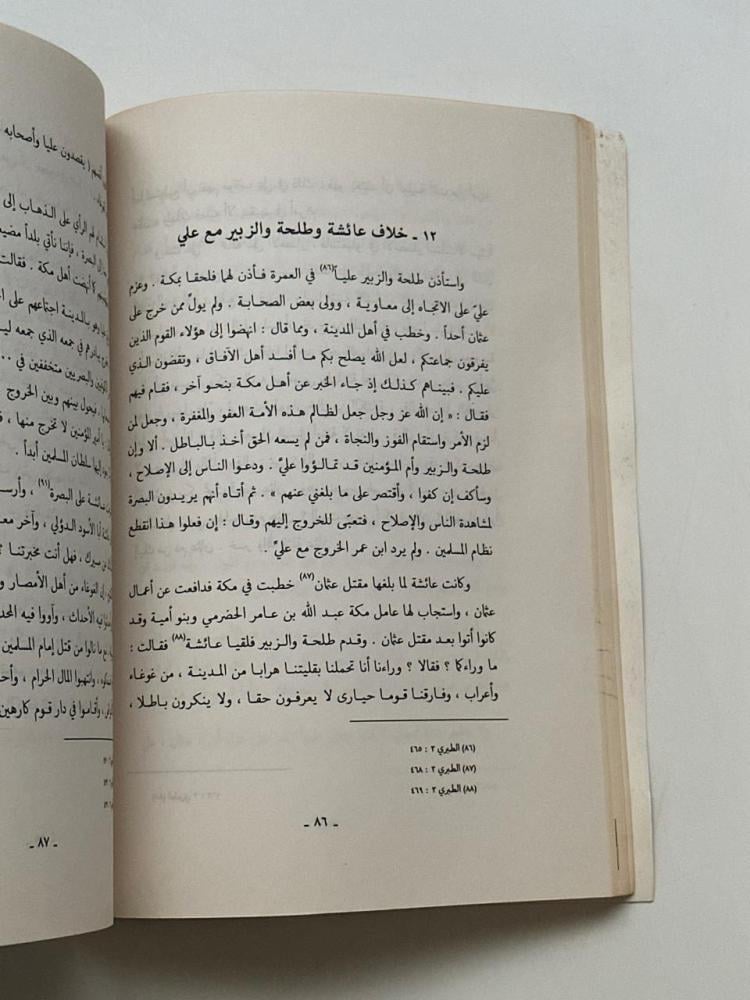 ١٢ - خلاف عائشة وطلحة والزبير مع علي
واستأذن طلحة والزبير علياً(٨٦) في العمرة فأذن لهما فلحقا بمكة . وعزم
عليّ على الاتجاه إلى معاوية ، وولى بعض الصحابة . ولم يولّ ممن خرج على
عثمان أحداً . وخطب في أهل المدينة ، ومما قال : انهضوا إلى هؤلاء القوم الذين
يفرقون جماعتكم ، لعل الله يصلح بكم ما أفسد أهل الآفاق ، وتقضون الذي
عليكم . فبيناهم كذلك إذ جاء الخبر عن أهل مكة بنحو آخر ، فقام فيهم
فقال : « إن الله عز وجل جعل لظالم هذه الأمة العفو والمغفرة ، وجعل لمن
لزم الأمر واستقام الفوز والنجاة ، فمن لم يسعه الحق أخذ بالباطل . ألا وإن
طلحة والزبير وأم المؤمنين قد تمالؤوا عليّ . ودعوا الناس إلى الإصلاح ،
وسأكف إن كفوا ، وأقتصر على ما بلغني عنهم » . ثم أتاه أنهم يريدون البصرة
لمشاهدة الناس والإصلاح ، فتعبّى للخروج إليهم وقال : إن فعلوا هذا انقطع
نظام المسلمين . ولم يرد ابن عمر الخروج مع عليّ .
وكانت عائشة لما بلغها مقتل عثمان(٨٧) خطبت في مكة فدافعت عن أعمال
عثمان ، واستجاب لها عامل مكة عبد الله بن عامر الحضرمي وبنو أمية وقد
كانوا أتوا بعد مقتل عثمان . وقدم طلحة والزبير فلقيا عائشة(٨٨) فقالت :
ما وراءكما ؟ فقالا ؟ وراءنا أنا تحملنا بقليتنا هرابا من المدينة ، من غوغاء
وأعراب ، وفارقنا قوما حيارى لا يعرفون حقا ، ولا ينكرون باطلا ،
(٨٦) الطبري ٣ : ٤٦٥
(٨٧) الطبري ٣ : ٤٦٨
(٨٨) الطبري ٣ : ٤٦٩
- ٨٦ -
يقصدون عليا وأصحابه
الرأي على الذهاب إلى
البصرة ، فإننا نأتي بلدا
أهل مكة . فقالت
بالمدينة اجتماعهم على
في جمعه الذي جمعه
والبصريين متخففين في ..
بينهم وبين الخروج
المؤمنين لا تخرج منها ،
إليها سلطان المسلمين أبداً .
عائشة على البصرة(٩١) ،
الأسود الدؤلي ، وآخر
، فهل أنت مخبرتنا ؟
الغوغاء من أهل الأمصار
الأحداث ، وآووا فيه
ما نالوا من قتل إمام المسلمين
، وانتهبوا المال الحرام ،
، وأقاموا في دار قوم كارهين
- ٨٧ -